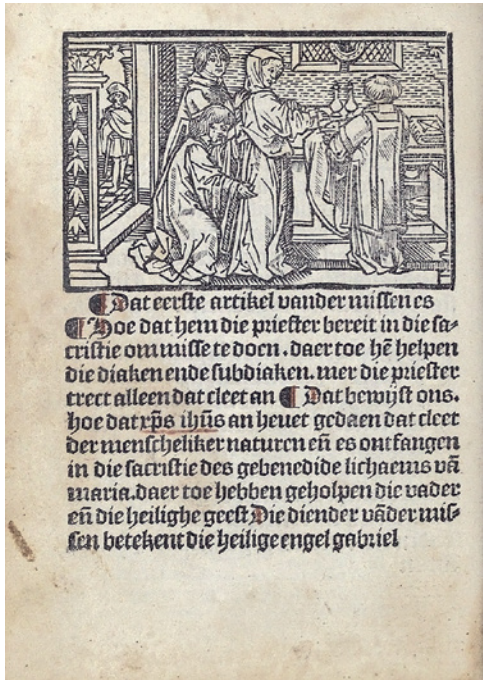 ¶ Dat eerste artikel vander missen es
¶ Hoe dat hem die priester bereit in die sa-
cristie om misse te doen. daer toe hē helpen
die diaken ende subdiaken. mer die priester
trect alleen dat cleet an ¶ Dat bewijst ons.
hoe dat xp̄s ihūs an hevet gedaen dat cleet
der menscheliker naturen eñ es ontfangen
in die sacristie des gebenedide lichaems vā
maria. daer toe hebben geholpen die vader
eñ die heilighe geest Die diender vāder mis-
sen betekent die heilige engel gabriel